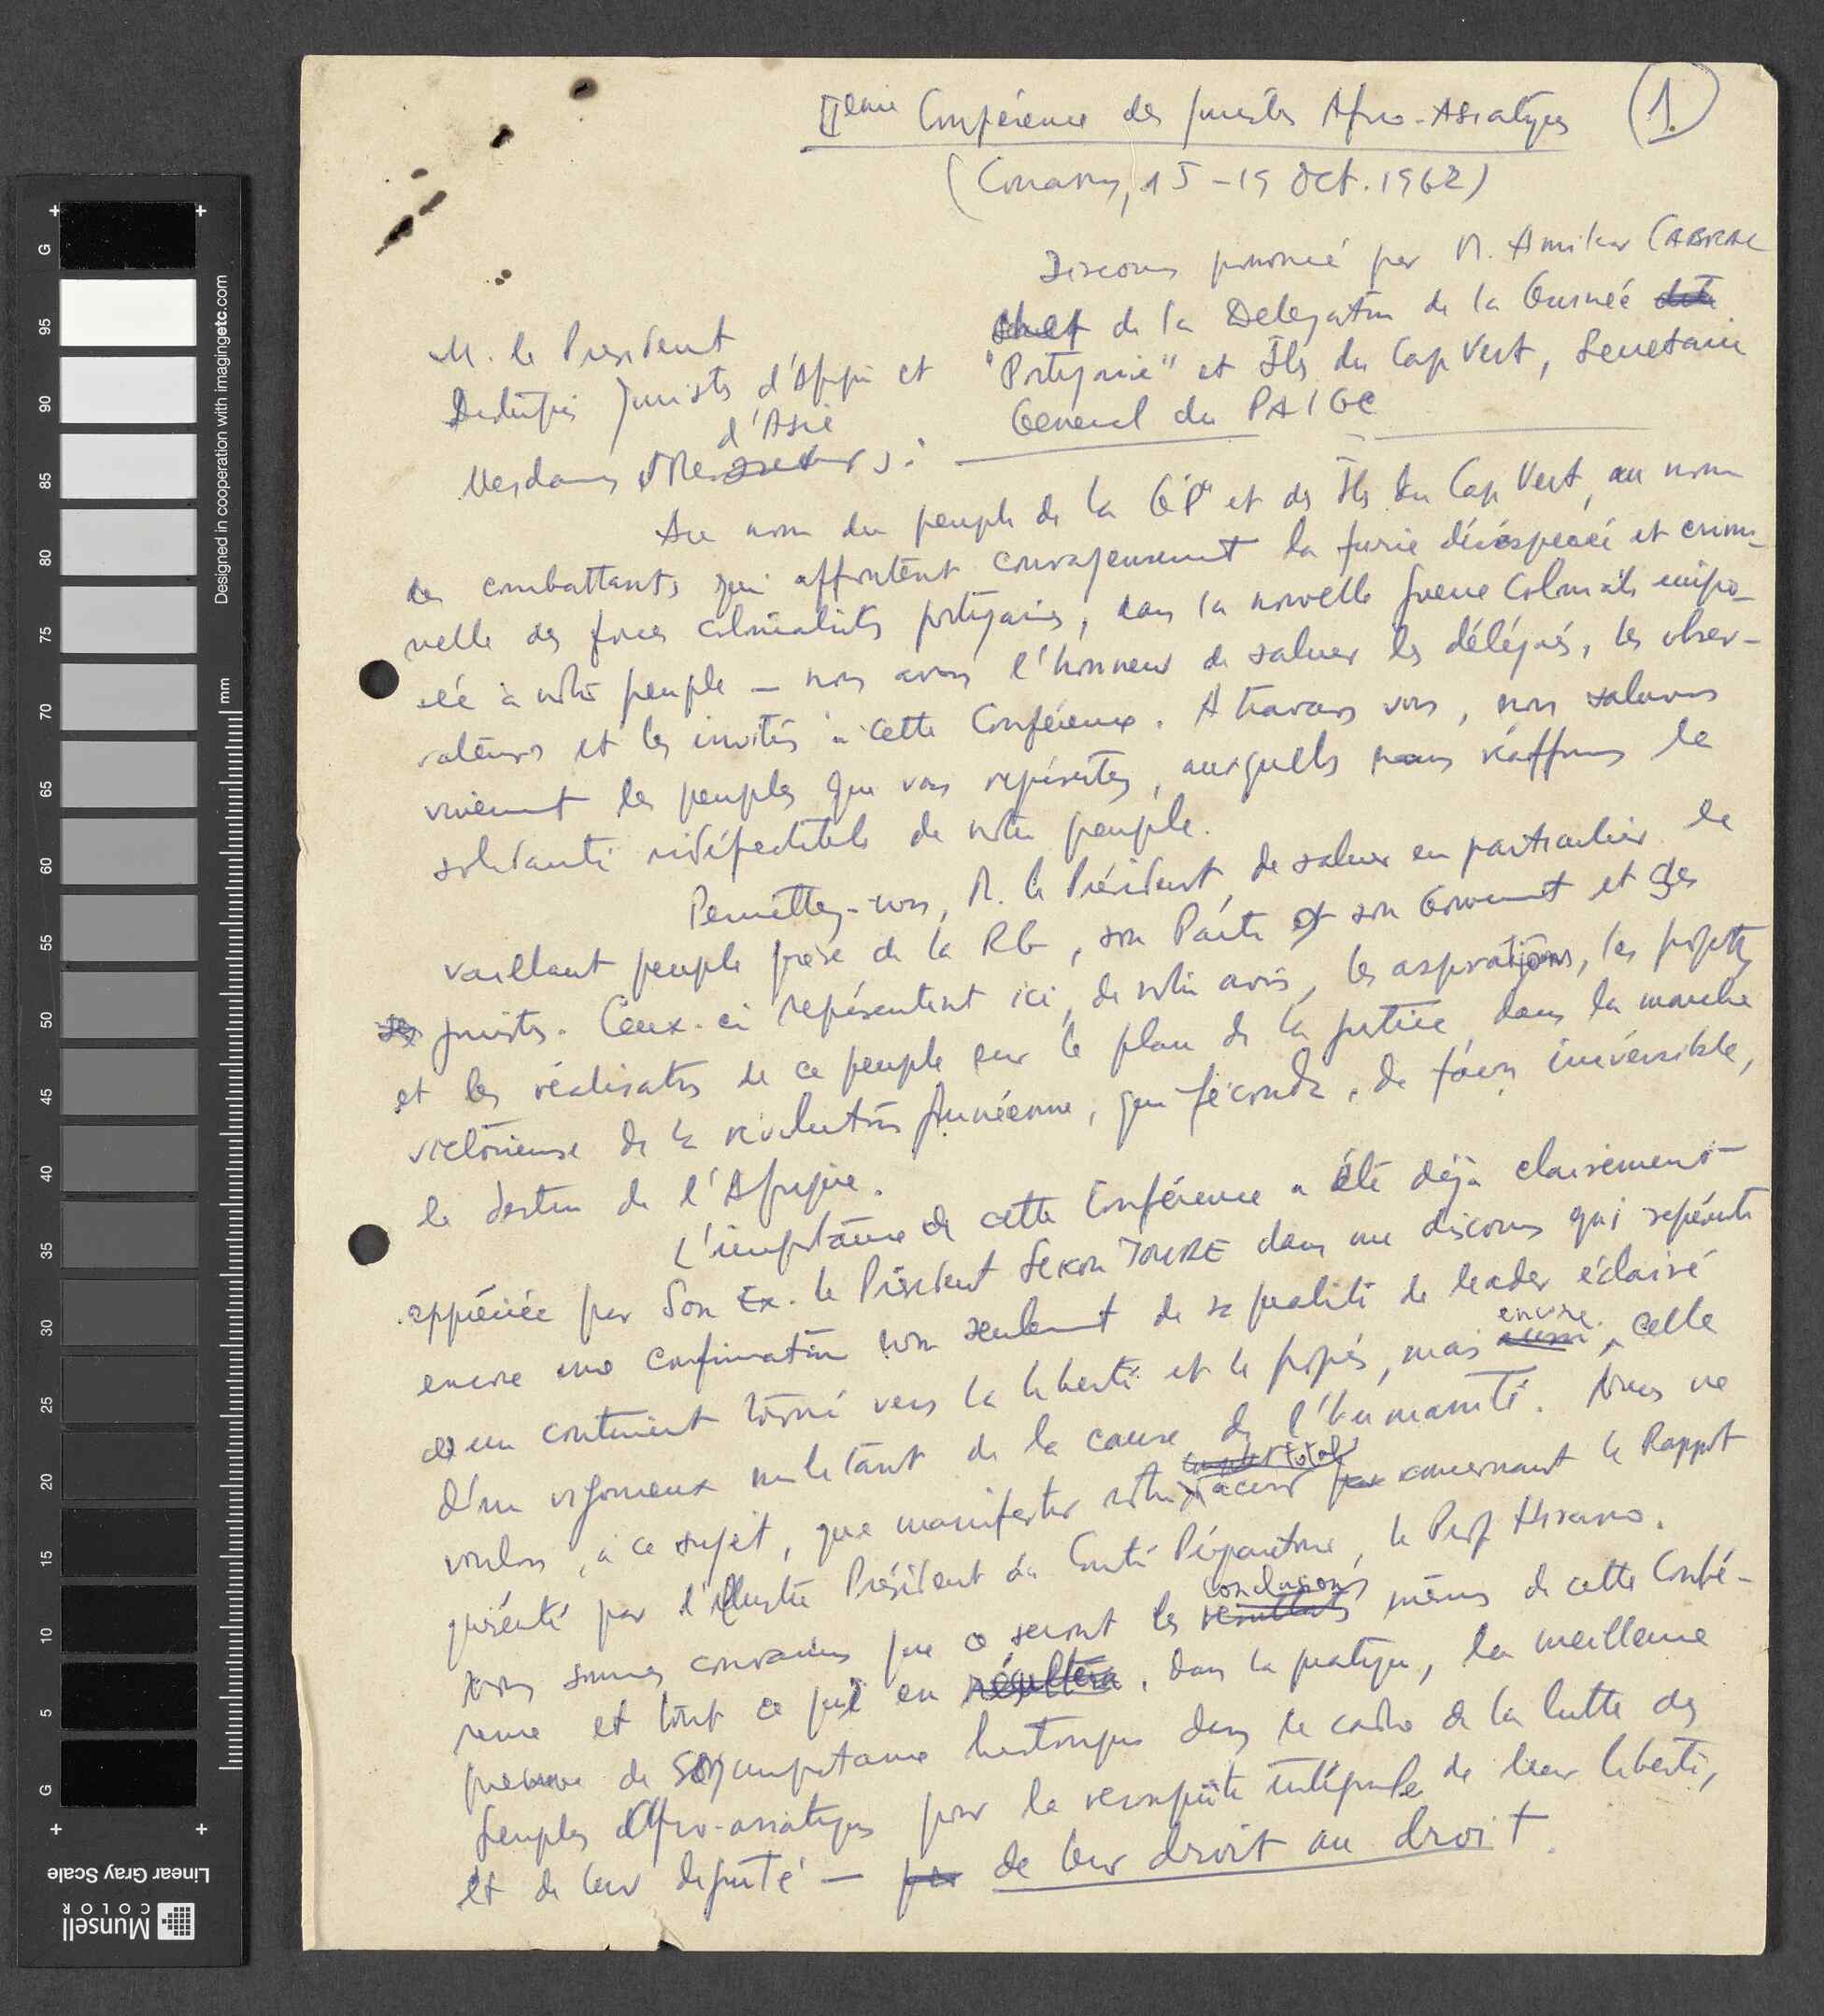 IIème Conférence des juristes Afro-Asiatiques
1.
(Conakry, 15-19 Oct. 1962)
Discours prononcé par M. Amilcar CABRAL
chef de la Delegation de la Guinée dite
"Portugaise" et Îles du Cap Vert, Secretaire
General du PAIGC
M. le President
Distingués juristes d'Afrique et
d'Asie
Mesdames et Messieurs:
Au nom du peuple de la "GP" et des Îles du Cap Vert, au nom
des combattants qui affrontent courageusement la furie désésperée et crimi-
nelle des forces colonialistes portugaises, dans la nouvelle guerre coloniale impo-
sée à notre peuple — nous avons l'honneur de saluer les délégués, les obser-
vateurs et les invités à cette Conférence. A travers vous, nous saluons
vivement les peuples que vous représentez, auxquels nous réaffirmons la
solidarité indéfectible de notre peuple.
Permettez-nous, M. le Président, de saluer en particulier le
vaillant peuple frère de la RG, son Parti et son Gouvernement et ses
ses juristes. Ceux-ci représentent ici, de notre avis, les aspirations, les projets
et les réalisations de ce peuple sur le plan de la justice, dans la marche
victorieuse de la révolution guinéenne, qui féconde, de façon irréversible,
le destin de l'Afrique.
L'importance de cette Conférence a été déjà clairement
appréciée par Son Ex. le Président Sekou TOURE dans un discours qui représente
encore une confirmation non seulement de sa qualité de leader éclairé
d'un continent tourné vers la liberté et le progrès, mais aussi encore, celle
d'un vigoureux militant de la cause de l'humanité. Nous ne
voulons, à ce sujet, que manifester notre total accord concernant le Rapport
présenté par l'illustre Président du Comité Préparatoire, le Prof Hirano.
Nous sommes convaincus que ce seront les résultats conclusions mêmes de cette Confé-
rence et tout ce qui en résultera, dans la pratique, la meilleure
preuve de son importance historique dans le cadre de la lutte des
peuples afro-asiatiques pour la reconquête intégrale de leur liberté,
et de leur dignité — de leur droit au droit.
Designed in cooperation with imagingetc.com
mm
G
95
90
85
80
75
70
65
60
55
50
45
40
35
30
25
20
15
10
5
G
Linear Gray Scale
Munsell
COLOR